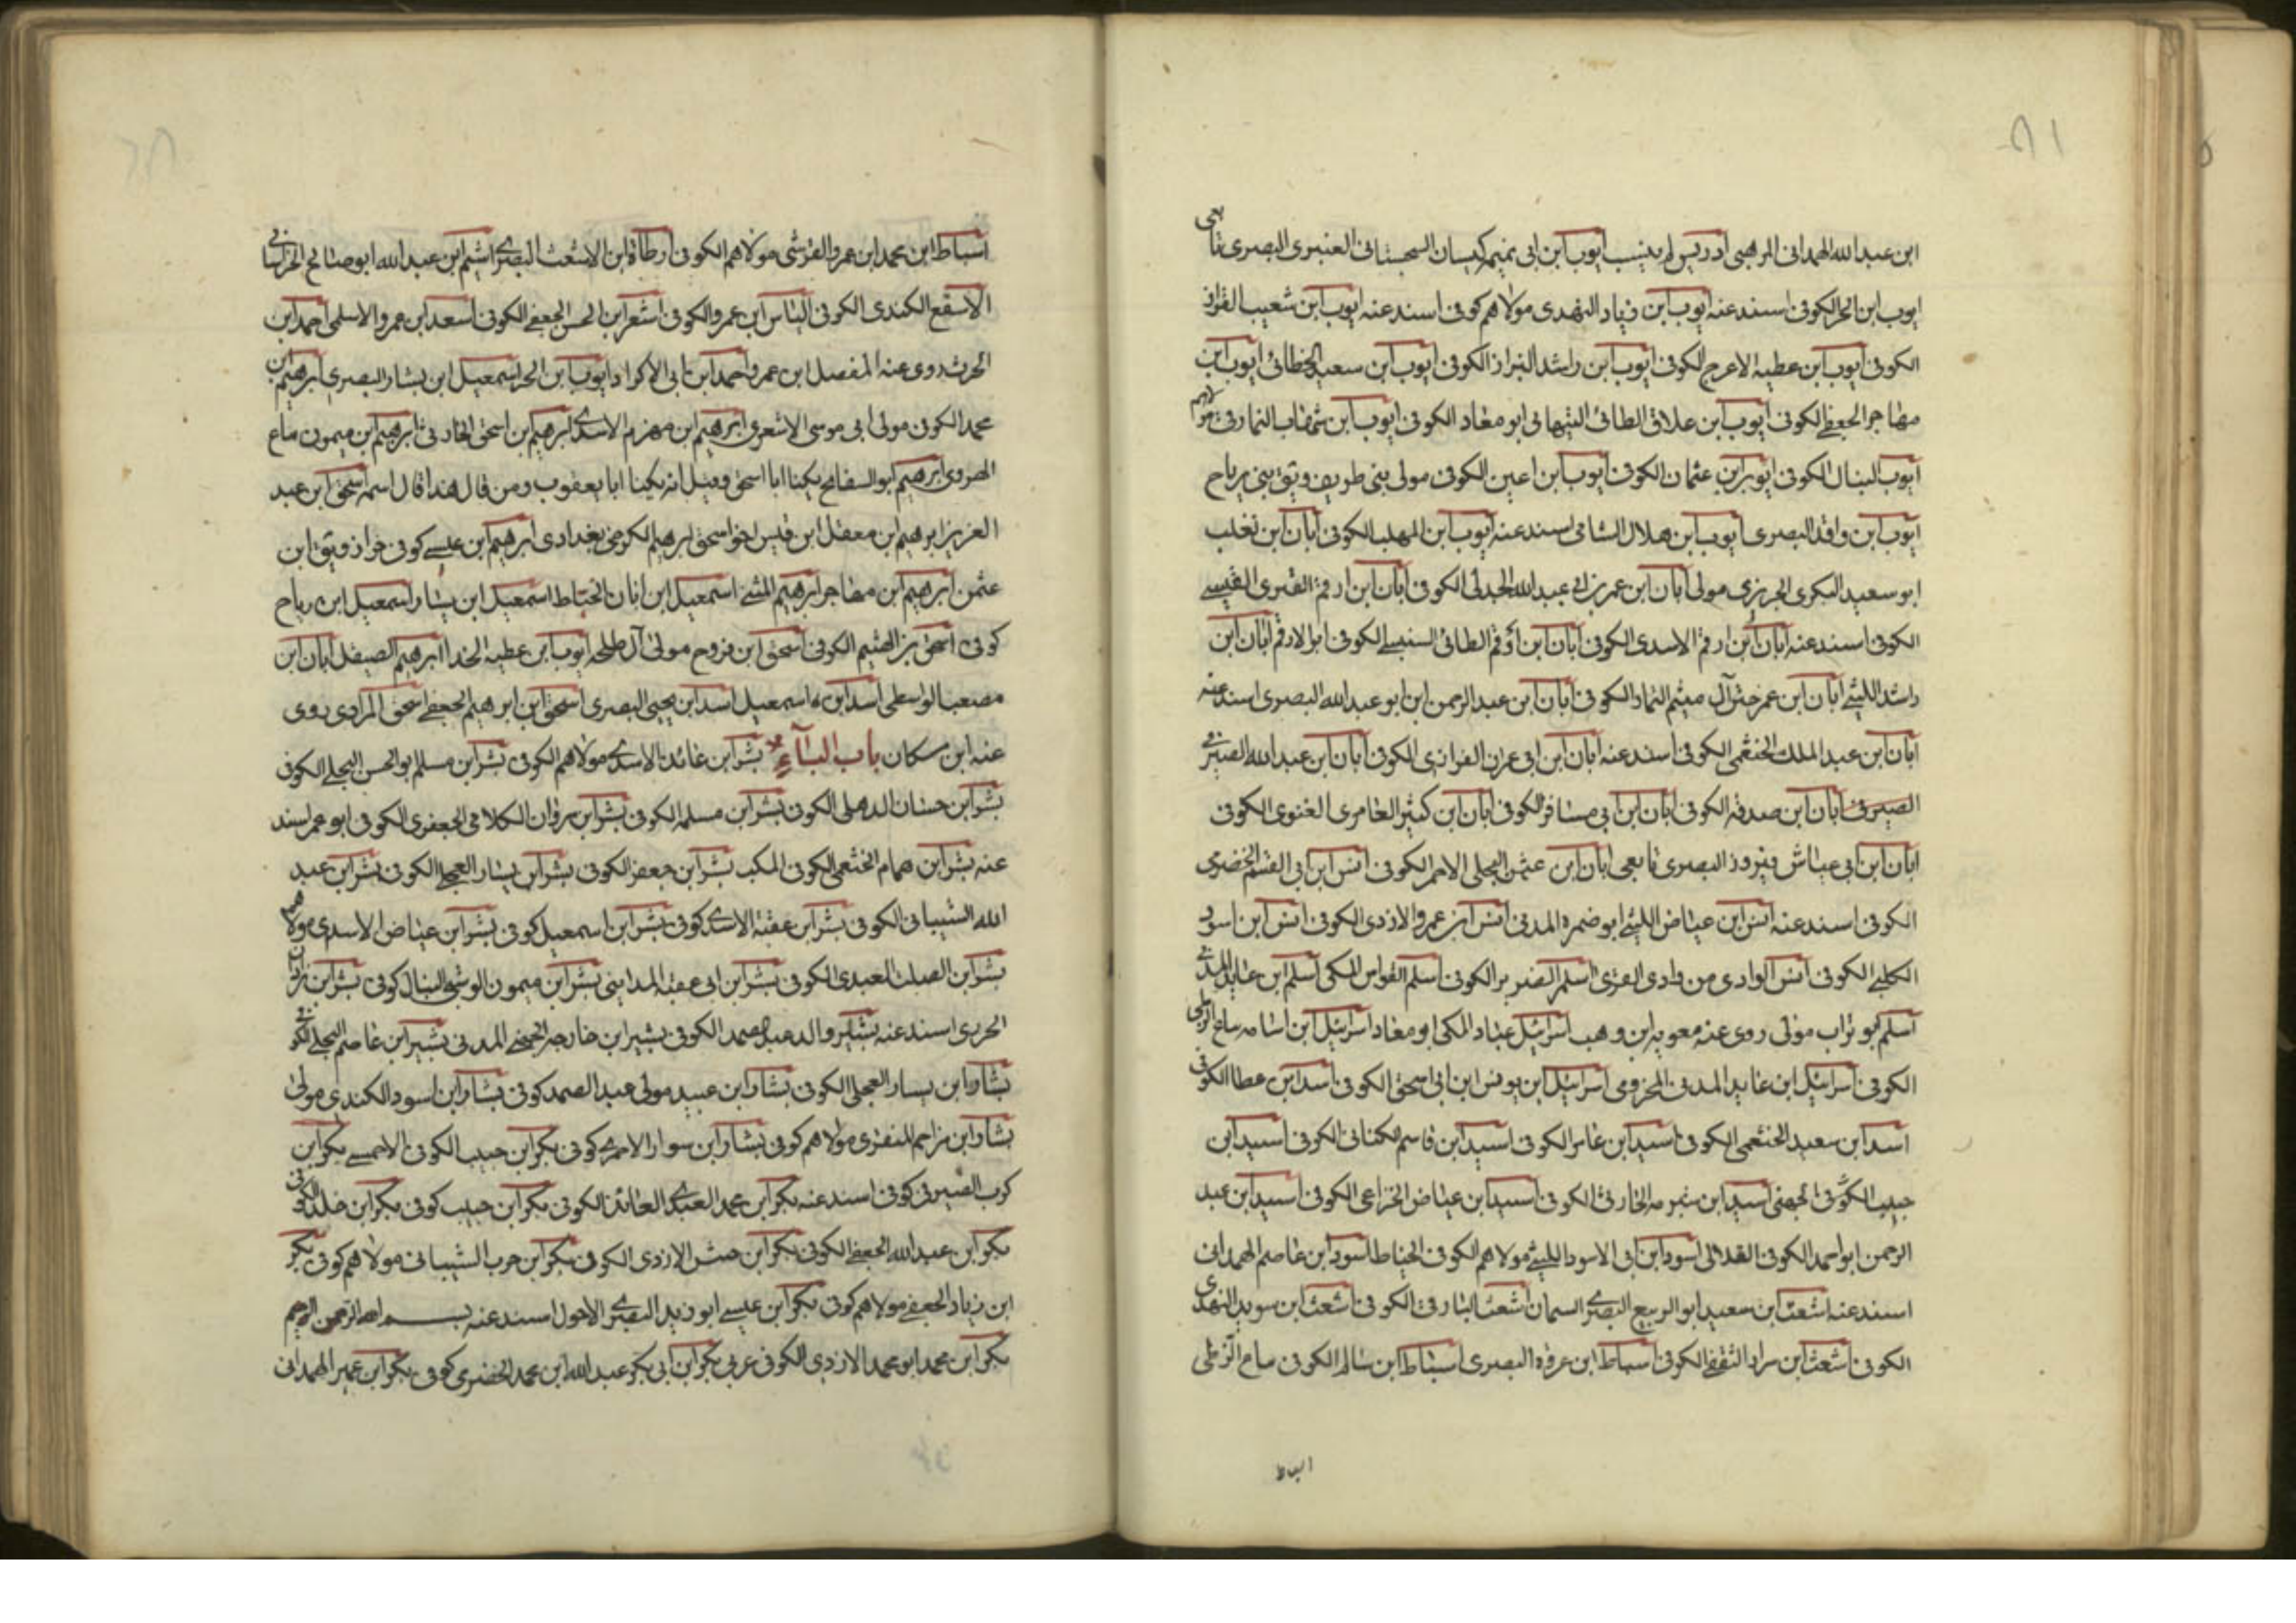 ابن عبد الله الهمدانى المرهبى ادريس لم ينسب ايوب ابن ابى تميمه كيسان السجستانى العنبرى البصرى تابعى
ايوب ابن الحر الكوفى اسند عنه ايوب ابن زياد النهدى مولاهم كوفى اسند عنه ايوب ابن شعيب القزاز
الكوفى ايوب ابن عطية الاعرج الكوفى ايوب ابن راشد البزاز الكوفى ايوب ابن سعيد الخطائى ايوب ابن
مهاجر الجعفى الكوفى ايوب ابن علاق الطائى النبهانى ابو معاد الكوفى ايوب ابن شهاب البارقى مولاهم
ايوب النبال الكوفى ايوب ابن عثمان الكوفى ايوب ابن اعين الكوفى مولى بنى طريف ويق بنى رياح
ايوب ابن واقد البصرى ايوب ابن هلال الشامى اسند عنه ايوب ابن المهلب الكوفى ابان ابن تغلب
ابو سعيد البكرى الجريرى مولى ابان ابن عمر بن ابى عبد الله الجدلى الكوفى ابان ابن ارقم العنزى القيسى
الكوفى اسند عنه ابان ابن ارقم الاسدى الكوفى ابان ابن ارقم الطائى السنبسى الكوفى ابو الارقم ابان ابن
راشد الليثى ابان ابن عمر ختن آل ميثم التمار الكوفى ابان ابن عبد الرحمن ابن ابو عبد الله البصرى اسند عنه
ابان ابن عبد الملك الخثعمى الكوفى اسند عنه ابان ابن ابى عمران الفزارى الكوفى ابان ابن عبد الله الصيرفى
الصيرفى ابان ابن صدقه الكوفى ابان ابن ابى مسافر الكوفى ابان ابن كثير العامرى الغنوى الكوفى
ابان ابن ابى عياش فيروز البصرى تابعى ابان ابن عثمن البجلى الاحمر الكوفى انس ابن ابى القسم الحضرمى
الكوفى اسند عنه انس ابن عياض الليثى ابو ضمره المدنى انس ابن عمرو الازدى الكوفى انس ابن اسود
الكلبى الكوفى انس الوادى من وادى القرى اسلم الضرير الكوفى اسلم القواس المكى اسلم ابن عايذ المدنى
اسلم ابو تراب مولى روى عنه معويه ابن وهب اسرائيل عباد المكى ابو معاد اسرائيل ابن اسامه بياع الزطى
الكوفى اسرائيل ابن عايد المدنى المخزومى اسرائيل ابن يونس ابن ابى اسحق الكوفى اسد ابن عطا الكوفى
اسد ابن سعيد الخثعمى الكوفى اسيد ابن عامر الكوفى اسيد ابن قاسم الكنانى الكوفى اسيد ابن
حبيب الكوفى الجهنى اسيد ابن شبرمه الحارثى الكوفى اسيد ابن عياض الخزاعى الكوفى اسيد ابن عبد
الرحمن ابو احمد الكوفى القلائى اسود ابن ابى الاسود الليثى مولاهم الكوفى الحناط اسود ابن عاصم الهمدانى
اسند عنه اشعث ابن سعيد ابو الربيع البصرى السمان اشعث البارقى الكوفى اشعث ابن سويد النهدى
الكوفى اشعث ابن سوار الثقفى الكوفى اسباط ابن عروه البصرى اسباط ابن سالم الكوفى بياع الزطى
اسباط
اسباط ابن محمد ابن عمرو القرشى مولاهم الكوفى ارطاة ابن الاشعث البصرى اشيم ابن عبد الله ابو صالح الخراسانى
الاسقع الكندى الكوفى الياس ابن عمرو الكوفى اشعر ابن الحسن الجعفى الكوفى اسعد ابن عمرو الاسلمى احمد ابن
الحرث روى عنه المفضل ابن عمر واحمد ابن ابى الاكراد ايوب ابن الحر اسمعيل ابن بشار البصرى ابرهيم ابن
محمد الكوفى مولى ابى موسى الاشعرى ابرهيم ابن مهزم الاسدى ابرهيم بن اسحق الحارثى ابرهيم ابن ميمون بياع
الهروى ابرهيم ابو السفاتج يكنا ابا اسحق وقيل انه يكينا ابا يعقوب ومن قال هذا قال اسمه اسحق ابن عبد
العزيز ابرهيم ابن معقل ابن قيس اخو اسحق ابرهيم الكرخى بغدادى ابرهيم ابن عيسى كوفى خزاز ويق ابن
عثمن ابرهيم ابن مهاجر ابرهيم المثنى اسمعيل ابن ابان الحناط اسمعيل ابن يسار اسمعيل ابن رياح
كوفى اسحق بن الهثيم الكوفى اسحق ابن فروح مولى آل طلحه ايوب ابن عطية الحذا ابرهيم الصيقل ابان ابن
مصعب الواسطى اسد ابن اسمعيل اسد ابن يحيى البصرى اسحق ابن ابرهيم الجعفى اسحق المرادى روى
عنه ابن مسكان باب الباء بشر ابن عائذ الاسدى مولاهم الكوفى بشر ابن مسلم ابو الحسن البجلى الكوفى
بشر ابن حسان الذهلى الكوفى بشر ابن مسلمه الكوفى بشر ابن مروان الكلابى الجعفرى الكوفى ابو عمر اسند
عنه بشر ابن همام الخثعمى الكوفى المكتب بشر ابن جعفر الكوفى بشر ابن يسار العجلى الكوفى بشر ابن عبد
الله الشيبانى الكوفى بشر ابن عقبة الاسدى كوفى بشر ابن اسمعيل كوفى بشر ابن عياض الاسدى مولاهم
بشر ابن الصلت العبدى الكوفى بشر ابن ابى عقبه المداينى بشر ابن ميمون الوشى النبال كوفى بشر ابن زاذان
الجزرى اسند عنه بشير والد عبد الصمد الكوفى بشير ابن خارجه الجهنى المدنى بشير ابن عاصم البجلى الكوفى
بشار ابن يسار العجلى الكوفى بشار ابن عبيد مولى عبد الصمد كوفى بشار ابن اسود الكندى مولى
بشار ابن مزاحم المنقرى مولاهم كوفى بشار ابن سوار الاحمرى كوفى بكر ابن حبيب الكوفى الاحمسى بكر ابن
كرب الصيرفى كوفى اسند عنه بكر ابن محمد العبدى العائذ الكوفى بكر ابن حبيب كوفى بكر ابن خالد الكوفى
بكر ابن عبد الله الجعفى الكوفى بكر ابن حبش الازدى الكوفى بكر ابن حرب الشيبانى مولاهم كوفى بكر
ابن زياد الجعفى مولاهم كوفى بكر ابن عيسى ابو زيد البصرى الاحول اسند عنه بسم الله الرحمن الرحيم
بكر ابن محمد ابو محمد الازدى الكوفى عربى بكر ابن ابى بكر عبد الله ابن محمد الحضرمى كوفى بكر ابن عمير الهمدانى